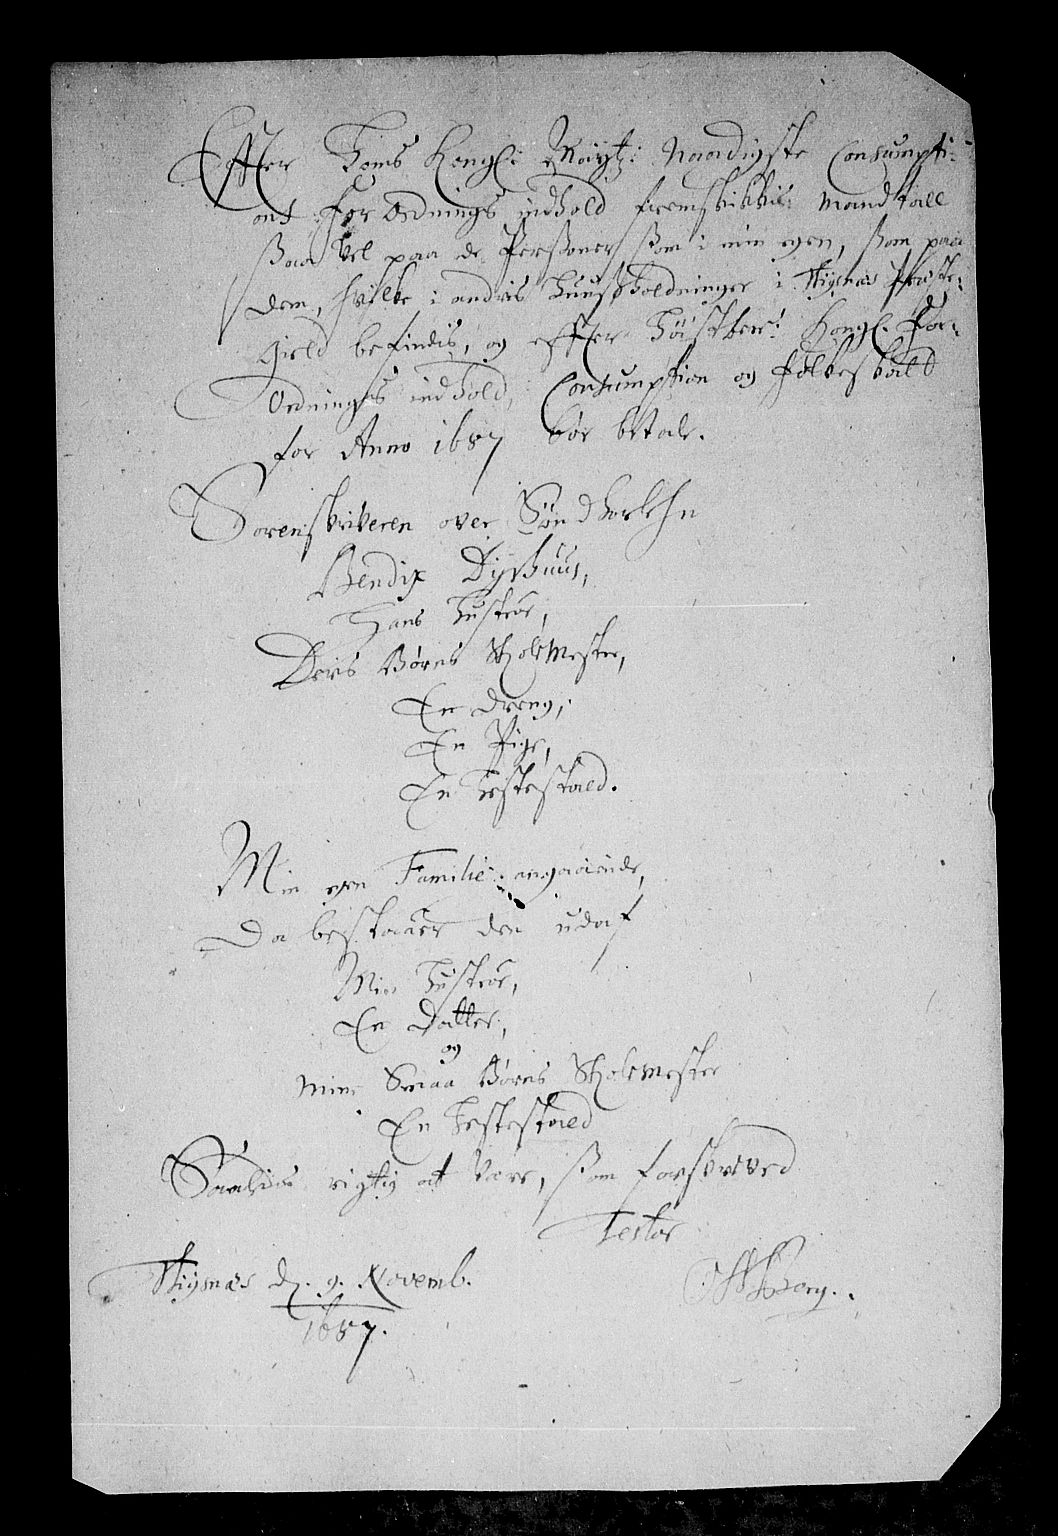 Effter Hans Kongl: Maytz: Naadigste Consumpti-
ons forordnings indhold fremskikkis mandtall
saa vel paa de Personer som i min egen, som paa
dem, hvilke i andris Huusholdninger i Præste-
gield befindis, og effter Høistber: Kongl. For-
ordnings indhold, Consumption og folkeskatt
for Anno 1687 bør betale.
Sorenskriveren over Sønd
Bendix
Hans Hustroe,
Deris Børns Skolemester,
En dreng,
En Pige,
En Festefolk.
Min egen Familie angaaende,
Da bestaaer den udaf
Min Hustroe,
En datter,
og
Mine Smaa Børns Skolemester
En Festefolk
Saaledes rigtig at være, som forskreved
Testor
d. 9. Novemb.
1687.